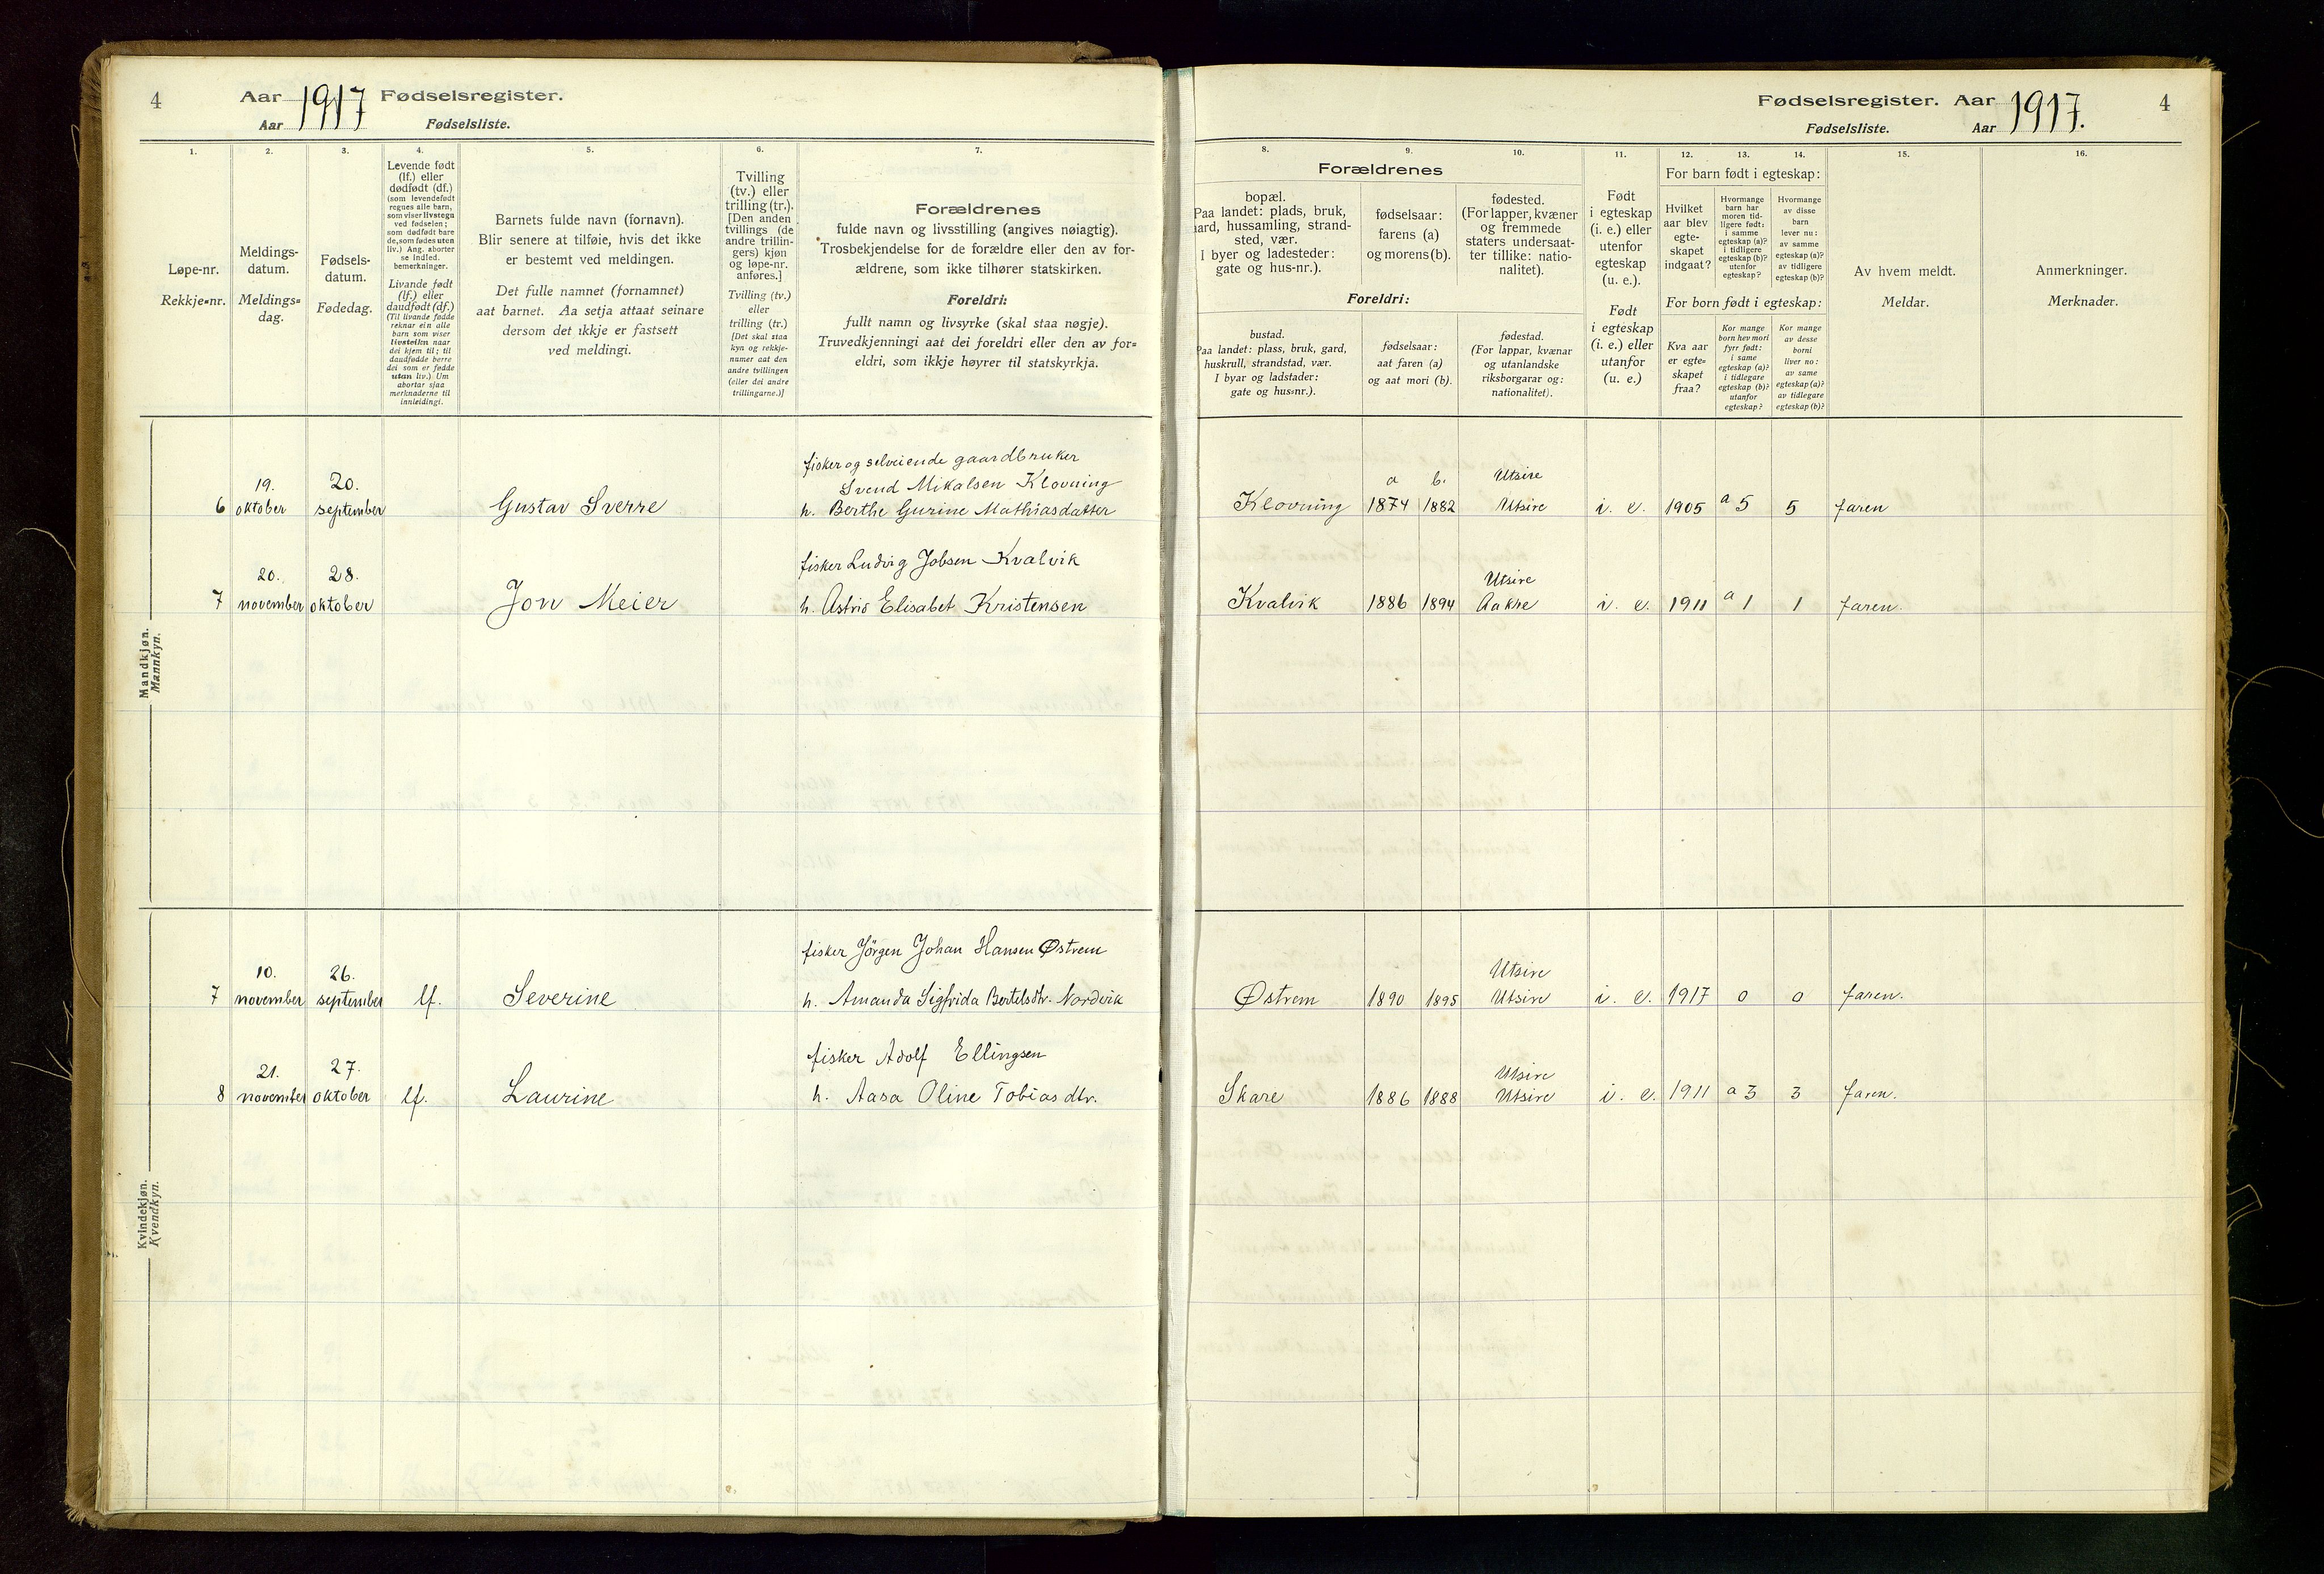 4
Aar 1917 Fødselsregister.
Aar Fødselsliste.
1.
2.
3.
4.
5.
6.
7.
Løpe-nr.
Rekkje=nr.
Meldings-
datum.
Meldings=
dag.
Fødsels-
datum.
Fødedag.
Levende født
(lf.) eller
dødfødt (df.)
(som levendefødt
regnes alle barn,
som viser livstegn
ved fødselen;
som dødfødt bare
de, som fødes uten
liv.) Ang. aborter
se indled.
bemerkninger.
Livande født
(lf.) eller
daudfødt (df.)
(Til livande fødde
reknar ein alle
born som viser
livsteikn naar
dei kjem til; til
daudfødde berre
dei som er fødde
utan liv.) Um
abortar sjaa
merknaderne til
innleidingi.
Barnets fulde navn (fornavn).
Blir senere at tilføie, hvis det ikke
er bestemt ved meldingen.
Det fulle namnet (fornamnet)
aat barnet. Aa setja attaat seinare
dersom det ikkje er fastsett
ved meldingi.
Tvilling
(tv.) eller
trilling (tr.).
[Den anden
tvillings (de
andre trillin-
gers) kjøn
og løpe-nr.
anføres.]
Tvilling (tv.)
eller
trilling (tr.)
[Det skal staa
kyn og rekkje-
numer aat den
andre tvillingen
(eller dei andre
trillingarne.)]
Forældrenes
fulde navn og livsstilling (angives nøiagtig).
Trosbekjendelse for de forældre eller den av for-
ældrene, som ikke tilhører statskirken.
Foreldri:
fullt namn og livsyrke (skal staa nøgje).
Truvedkjenningi aat dei foreldri eller den av for=
eldri, som ikkje høyrer til statskyrkja.
Mandkjøn.
Mannkyn.
fisker og selveiende gaardbruker
19. 20. Svend Mikalsen Klovning
6 oktober september Gustav Sverre h. Berthe Gurine Mathiasdatter
fisker Ludvig Jobsen Kvalvik
20. 28.
7 november oktober Jon Meier h. Astrid Elisabet Kristensen
Kvindekjøn.
Kvendkyn.
fisker Jörgen Johan Hansen Østrem
10. 26.
7 november september lf. Severine h. Amanda Sigfrida Bertelsdtr. Nordvik
fisker Adolf Ellingsen
21. 27.
8 november oktober lf. Laurine h. Aasa Oline Tobiasdtr.
Fødselsregister. Aar 1917. 4
Fødselsliste. Aar
8.
9.
10.
11.
12.
13.
14.
15.
16.
Forældrenes
bopæl.
Paa landet: plads, bruk,
aard, hussamling, strand-
sted, vær.
I byer og ladesteder:
gate og hus-nr.).
fødselsaar:
farens (a)
og morens (b).
fødested.
(For lapper, kvæner
og fremmede
staters undersaat-
ter tillike: natio-
nalitet).
Foreldri:
bustad.
Paa landet: plass, bruk, gard,
huskrull, strandstad, vær.
I byar og ladstader:
gate og hus=nr.).
fødselsaar:
aat faren (a)
og aat mori (b).
fødestad.
(For lappar, kvænar
og utanlandske
riksborgarar og:
nationalitet).
Født
i egteskap
(i. e.) eller
utenfor
egteskap
(u. e.).
Født
i egteskap
(i. e.) eller
utanfor
(u. e.)
For barn født i egteskap:
Hvilket
aar blev
egte-
skapet
indgaat?
Hvormange
barn har
moren tid-
ligere født:
i samme
egteskap (a)?
i tidligere
egteskap (b)?
utenfor
egteskap?
Hvormange
av disse
barn
lever nu:
av samme
egteskap (a)?
av tidligere
egteskap (b)?
For born født i egteskap:
Kva aar
er egte-
skapet
fraa?
Kor mange
born hev mori
fyrr født:
i same
egteskap (a)?
i tidlegare
egteskap (b)?
utanfor
egteskap?
Kor mange
av desse
borni
liver no:
av same
egteskap (a)?
av tidlegare
egteskap (b)?
Av hvem meldt.
Meldar.
Anmerkninger.
Merknader.
a b. Utsire
Klovning 1874 1882 Utsire i. e. 1905 a 5 5 faren
Utsire
Kvalvik 1886 1894 Aakre i. e. 1911 a 1 1 faren.
Utsire
Østrem 1890 1895 Utsire i. e. 1917 0 0 faren.
Utsire
Skare 1886 1888 Utsire i. e. 1911 a 3 3 faren.